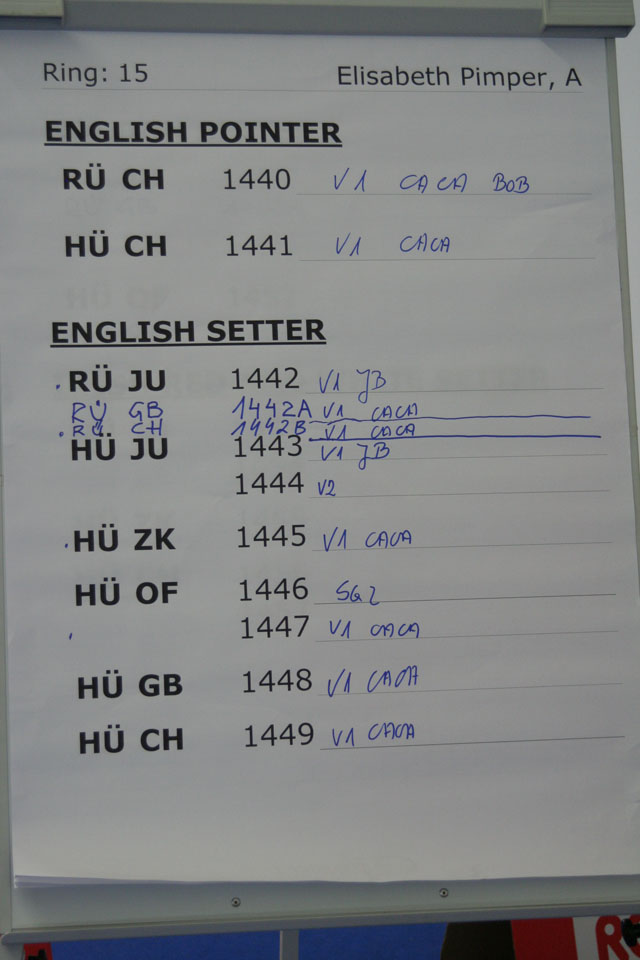 Ring: 15 Elisabeth Pimper, A
ENGLISH POINTER
RÜ CH 1440 V1 CACA BOB
HÜ CH 1441 V1 CACA
ENGLISH SETTER
RÜ JU 1442 V1 JB
RÜ GB 1442A V1 CACA
RÜ CH 1442B V1 CACA
HÜ JU 1443 V1 JB
1444 V2
HÜ ZK 1445 V1 CACA
HÜ OF 1446 SG2
1447 V1 CACA
HÜ GB 1448 V1 CACA
HÜ CH 1449 V1 CACA